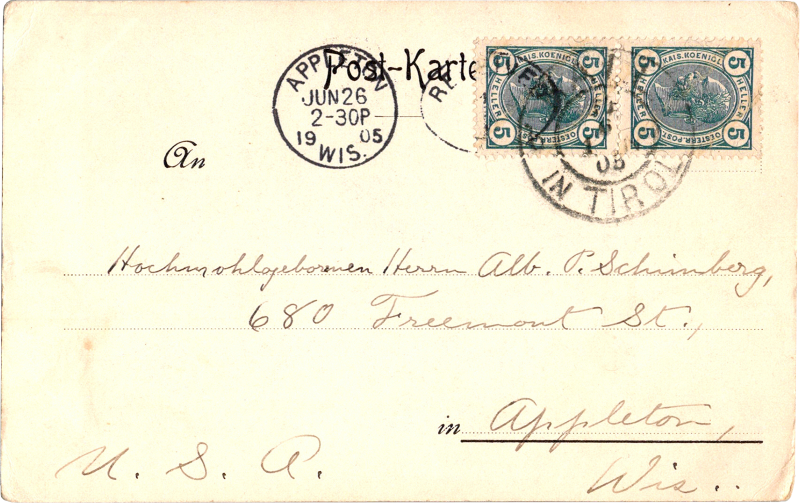 Post-Karte
APPLETON
JUN 26
2-30P
1905
WIS.
RE
5 5
KAIS. KOENIGL.
HELLER HELLER
OESTERR. POST
5 5
5 5
KAIS. KOENIGL.
HELLER HELLER
OESTERR. POST
5 5
05
IN TIROL
An
Hochwohlgeborenen Herrn Alb. P. Schimberg,
680 Freemont St.,
in Appleton,
U. S. A.
Wis..